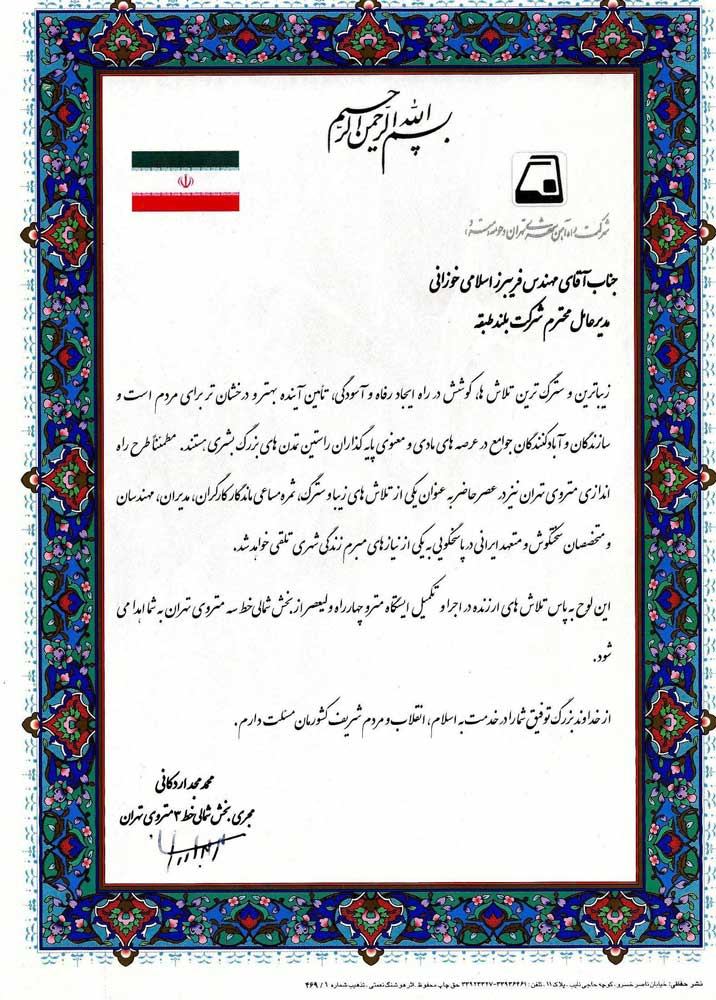 بسم الله الرحمن الرحیم
شرکت راه آهن شهری تهران و حومه (مترو)
جناب آقای مهندس فریبرز اسلامی خوزانی
مدیرعامل محترم شرکت بلند طبقه
زیباترین و سترگ ترین تلاش ها، کوشش در راه ایجاد رفاه و آسودگی، تأمین آینده بهتر و درخشان تر برای مردم است و
سازندگان و آبادکنندگان جوامع در عرصه های مادی و معنوی پایه گذاران راستین تمدن های بزرگ بشری هستند. مطمئناً طرح راه
اندازی متروی تهران نیز در عصر حاضر به عنوان یکی از تلاش های زیبا و سترگ، ثمره مساعی ماندگار کارگران، مدیران، مهندسان
و متخصصان سختکوش و متعهد ایرانی در پاسخگویی به یکی از نیازهای مبرم زندگی شهری تلقی خواهد شد.
این لوح به پاس تلاش های ارزنده در اجرا و تکمیل ایستگاه مترو چهارراه ولیعصر از بخش شمالی خط سه متروی تهران به شما اهدا می
شود.
از خداوند بزرگ توفیق شما را در خدمت به اسلام، انقلاب و مردم شریف کشورمان مسئلت دارم.
محمد مجد اردکانی
مجری بخش شمالی خط ۳ متروی تهران
نشر حفظی: خیابان ناصر خسرو، کوچه حاجی نایب، پلاک ۱۱، تلفن: ۳۳۹۳۶۴۶۱-۳۳۹۲۳۳۴۷ حق چاپ محفوظ. اثر هوشنگ نعمتی. تذهیب شماره ۱ / ۴۶۹